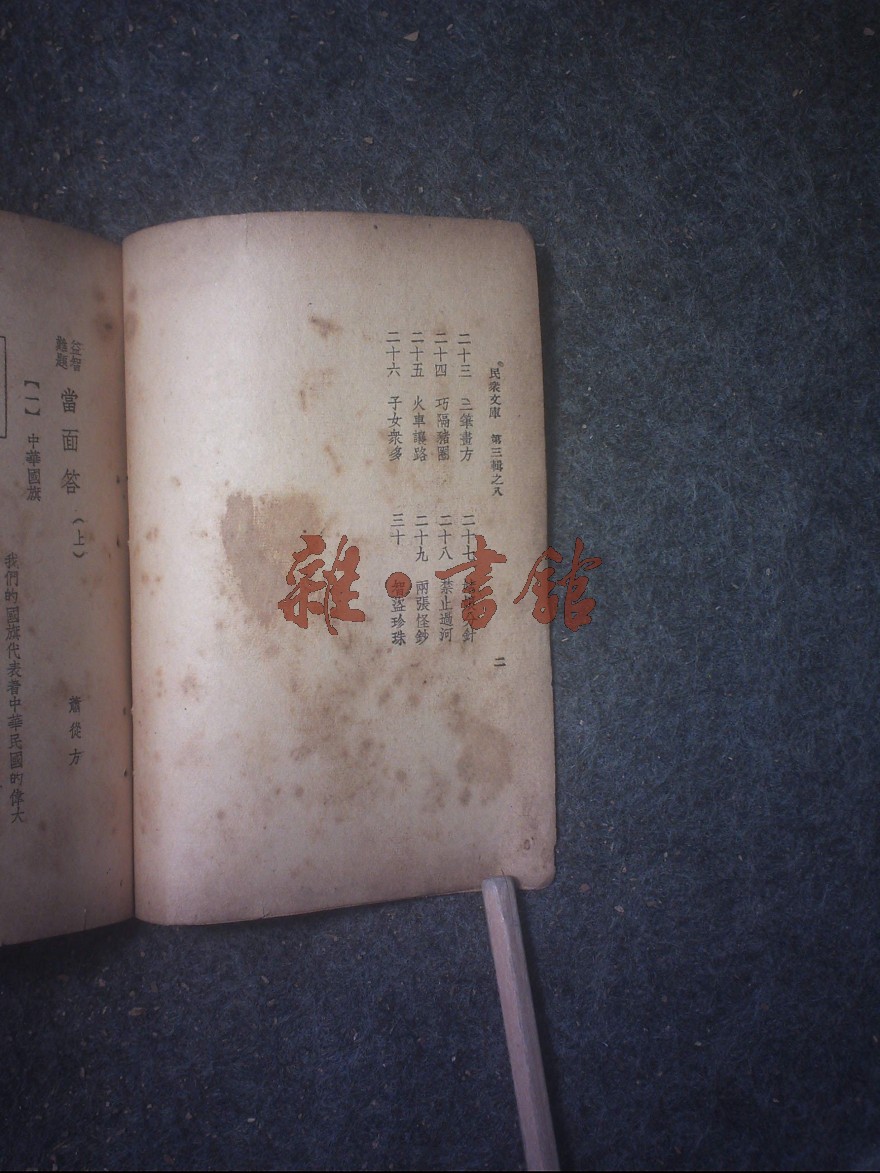 民衆文庫 第三輯之八
二十三 三筆畫方
二十四 巧隔豬圈
二十五 火車讓路
二十六 子女衆多
二十七 針
二十八 禁止過河
二十九 兩張怪鈔
三十 智盜珍珠
二
雜·書館
益智難題 當面答（上） 蕭從方
【一】 中華國旗
我們的國旗代表着中華民國的偉大